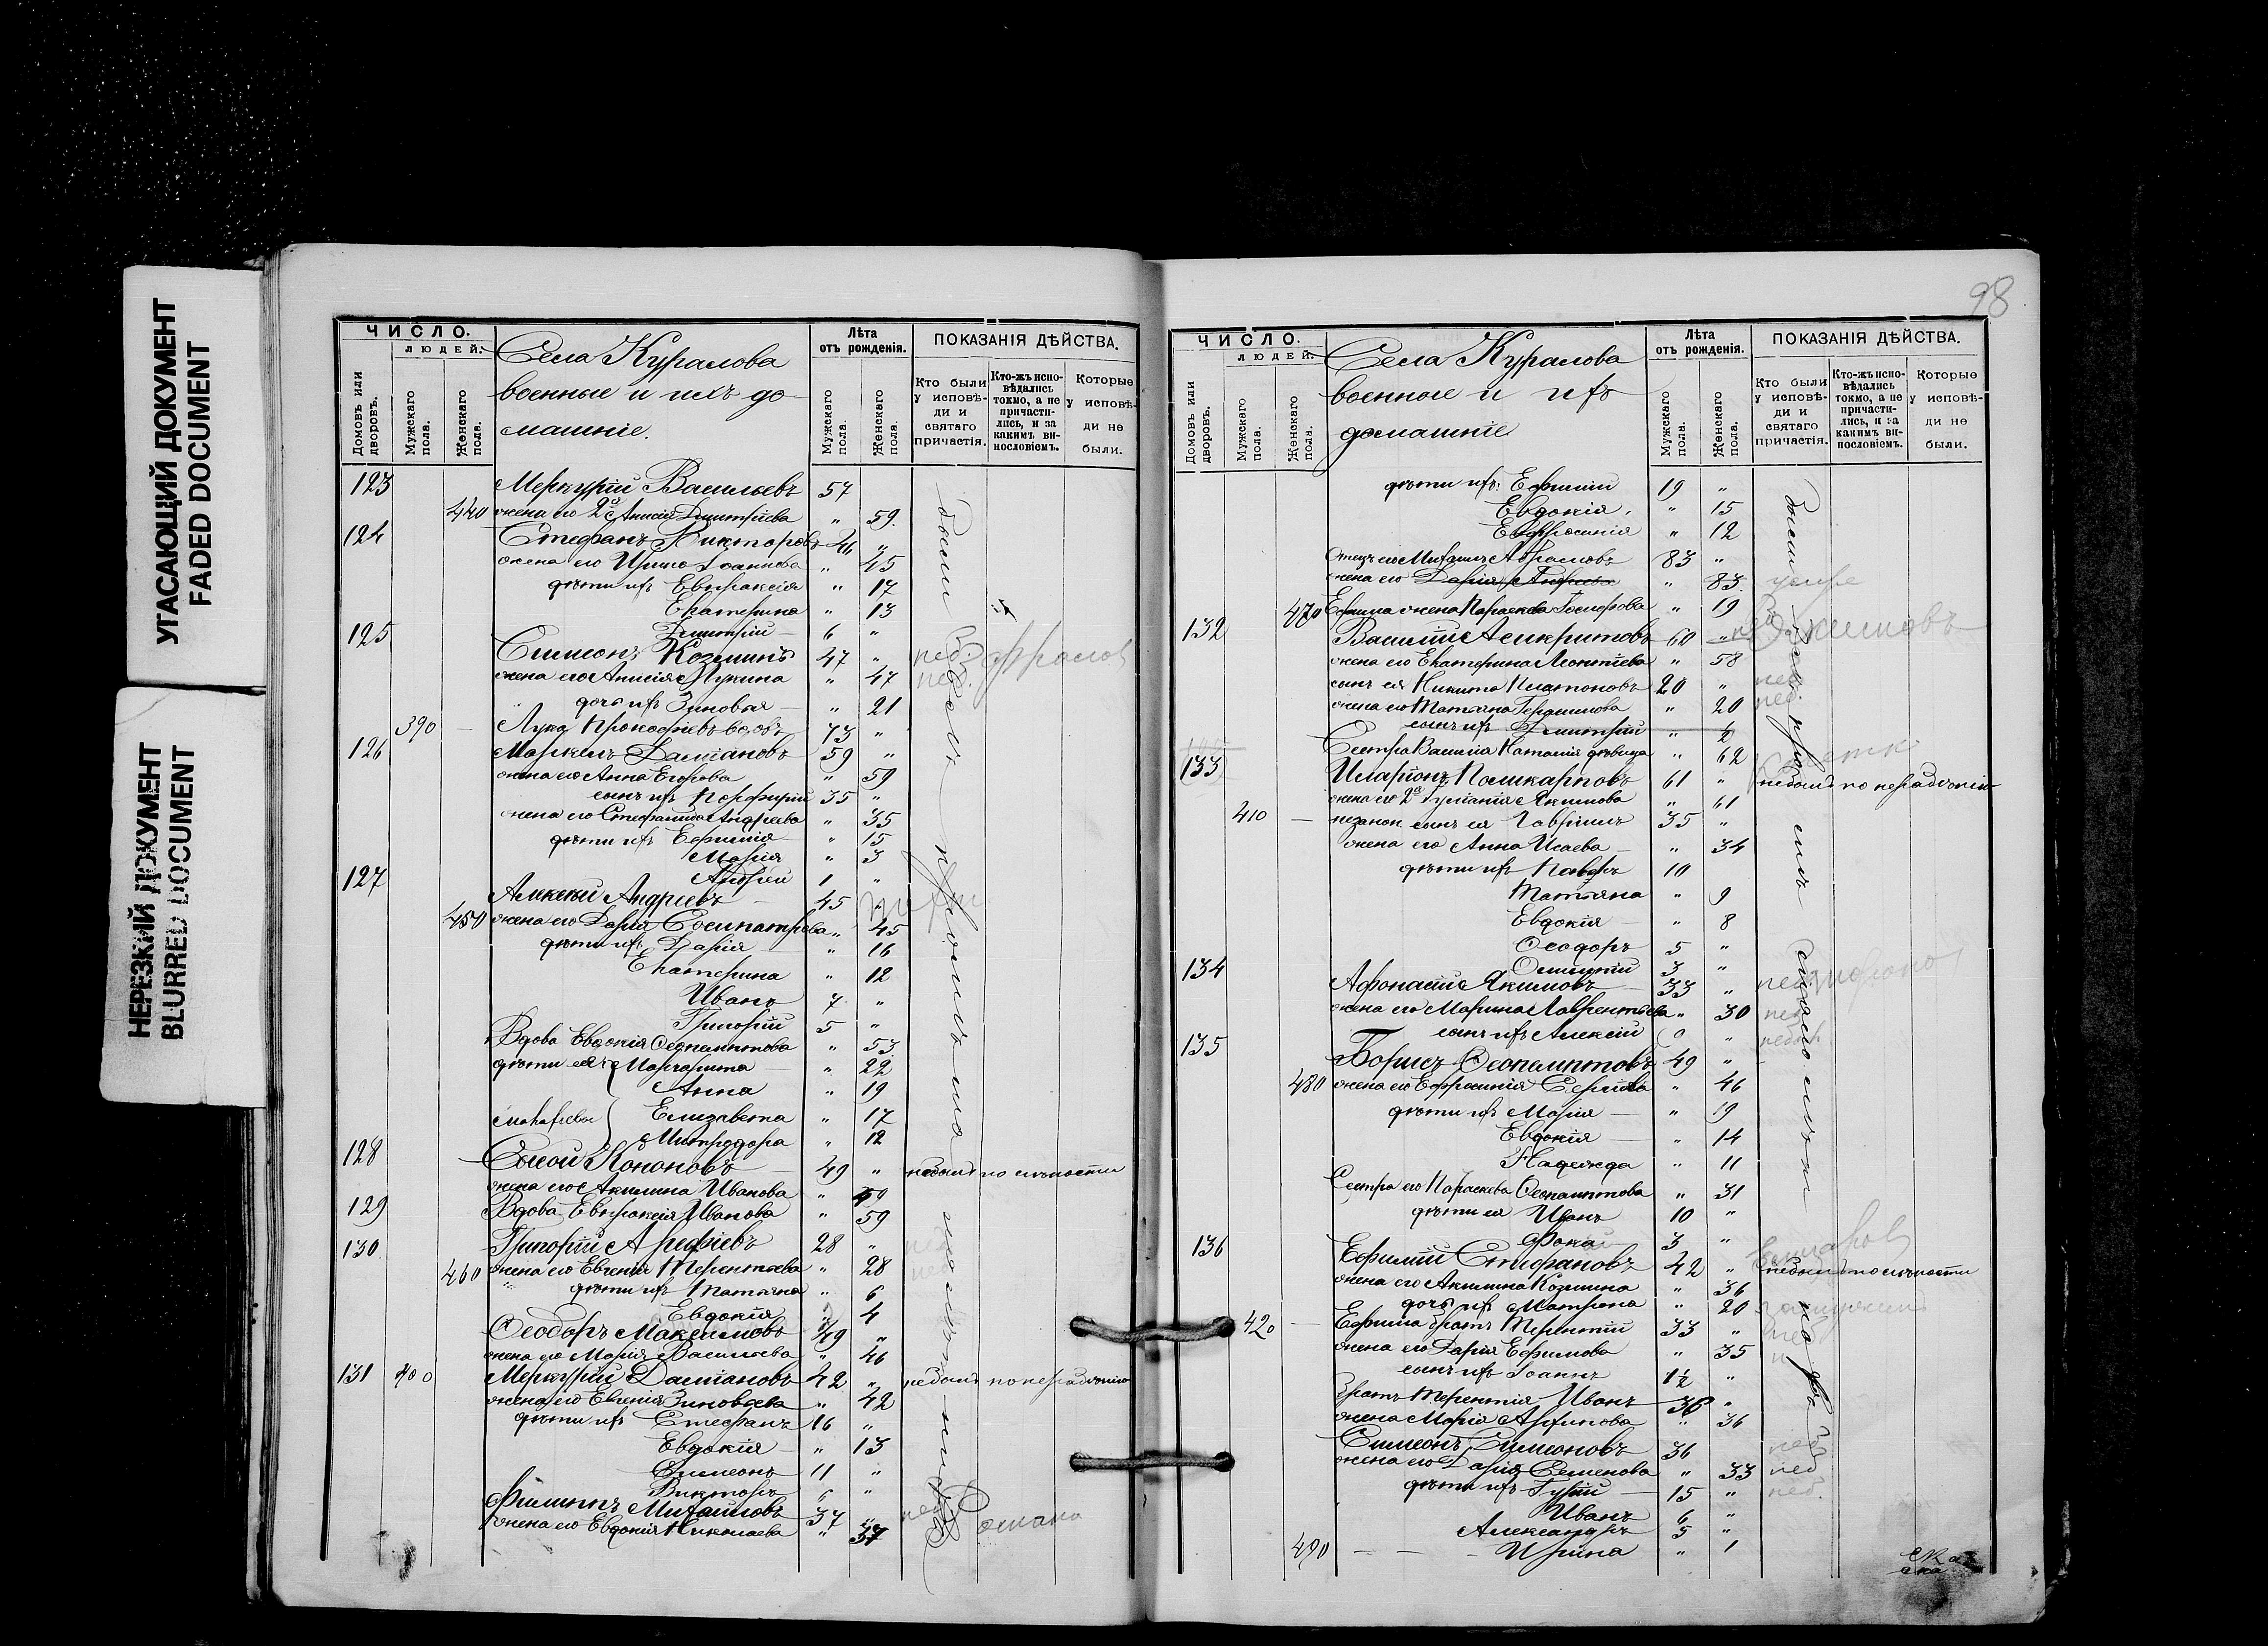 УГАСАЮЩИЙ ДОКУМЕНТ
FADED DOCUMENT
НЕРЕЗКИЙ ДОКУМЕНТ
BLURRED DOCUMENT
ЧИСЛО.
людей.
Домовъ или дворовъ.
Мужскаго пола.
Женскаго пола.
Села Куралова
военные и ихъ до-
машніе.
Лѣта
отъ рожденія.
Мужскаго пола.
Женскаго пола.
ПОКАЗАНІЯ ДѢЙСТВА.
Кто были у исповѣди и святаго причастія.
Кто-жъ исповѣдались токмо, а не причастились, и за какимъ винословіемъ.
Которые у исповѣди не были.
123 Меркурій Васильевъ 57
440 жена его 2я Анисія Димитріева " 59
124 Стефанъ Викторовъ 46 "
жена его Ирина Іоаннова " 45
дѣти ихъ Евпраксія " 17
Екатерина " 13
Димитрій 6 "
125 Симеонъ Козминъ 47 "
жена его Анисія Лукина " 47
дочь ихъ Зиновья " 21
390 Лука Прокофьевъ вдовъ 73 "
126 Маркелъ Даміановъ 59 "
жена его Анна Егорова " 59
сынъ ихъ Порфирій 35 "
жена его Стефанида Андреева " 35
дѣти ихъ Ефимія " 15
Марія " 3
Андрей 1 "
127 Алексѣй Андреевъ 45
450 жена его Дарія Сосипатрова " 45
дѣти ихъ Дарія " 16
Екатерина " 12
Иванъ 7 "
Григорій 5 "
Вдова Евдокія Феопемптова " 53
дѣти ея Маргарита " 22
Анна " 19
Елизавета " 17
Митродора " 12
128 Сысой Кононовъ 49 " небылъ по
жена его Акилина Иванова " 49
129 Вдова Евпраксія Иванова " 59
130 Григорій Арефіевъ 28 "
460 жена его Евгенія Терентьева " 28
дѣти ихъ Татьяна " 6
Евдокія 4
Ѳеодоръ Максимовъ 49 "
жена его Марія Васильева " 46
131 400 Меркурій Даміановъ 42 " небылъ по нерадѣнію
жена его Евгенія Зиновьева " 42
дѣти ихъ Стефанъ 16 "
Евдокія " 13
Симеонъ 11 "
Викторъ 6 "
Филиппъ Михайловъ 37 "
жена его Евдокія Николаева " 37
98
ЧИСЛО.
людей.
Домовъ или дворовъ.
Мужскаго пола.
Женскаго пола.
Села Куралова
военные и ихъ
домашніе
Лѣта
отъ рожденія.
Мужскаго пола.
Женскаго пола.
ПОКАЗАНІЯ ДѢЙСТВА.
Кто были у исповѣди и святаго причастія.
Кто-жъ исповѣдались токмо, а не причастились, и за какимъ винословіемъ.
Которые у исповѣди не были.
дѣти ихъ: Ефимій 19 "
Евдокія " 15
Евфросинія " 12
Отецъ его Михаилъ Абрамовъ 83 "
жена его Дарія " 83
470 Ефима жена Параскева " 19
132 Василій Асикритовъ 60 "
жена его Екатерина Леонтіева " 58
сынъ ея Никита Платоновъ 20 "
жена его Татьяна Герасимова " 20
сынъ ихъ Димитрій
Сестра Василія Наталія дѣвица " 62
133 Иларіонъ Поликарповъ 61 " небылъ по нерадѣнію
жена его 2я Іуліанія Якимова " 61
410 незакон сынъ ея Гавріилъ 35 "
жена его Анна Исаева " 34
дѣти ихъ Павелъ 10
Татьяна " 9
Евдокія " 8
Ѳеодоръ 5 "
3 "
134 Афонасій Якимовъ 33 "
жена его Марина Лаврентьева " 30
сынъ ихъ Алексій "
135 Борисъ Ѳеопемптовъ 49 "
480 жена его Ефросинія " 46
дѣти ихъ Марія " 19
Евдокія " 14
Надежда " 11
Сестра его Параскева Ѳеопемптова " 31
дѣти ея Иванъ 10 "
Фока 3 "
136 Ефимій Стефановъ 42 "
жена его Акилина Козмина " 36
дочь ихъ Матрона " 20
420 Ефима братъ Терентій 33 "
жена его Дарія Ефимова " 35
сынъ ихъ Іоаннъ 1½ "
Братъ Терентія Иванъ 38 "
жена Марія " 36
Симеонъ Симеоновъ 36
жена его Дарія Семенова " 33
дѣти ихъ Гурій 15 "
Иванъ 6 "
Александръ 5 "
490 Ирина " 1